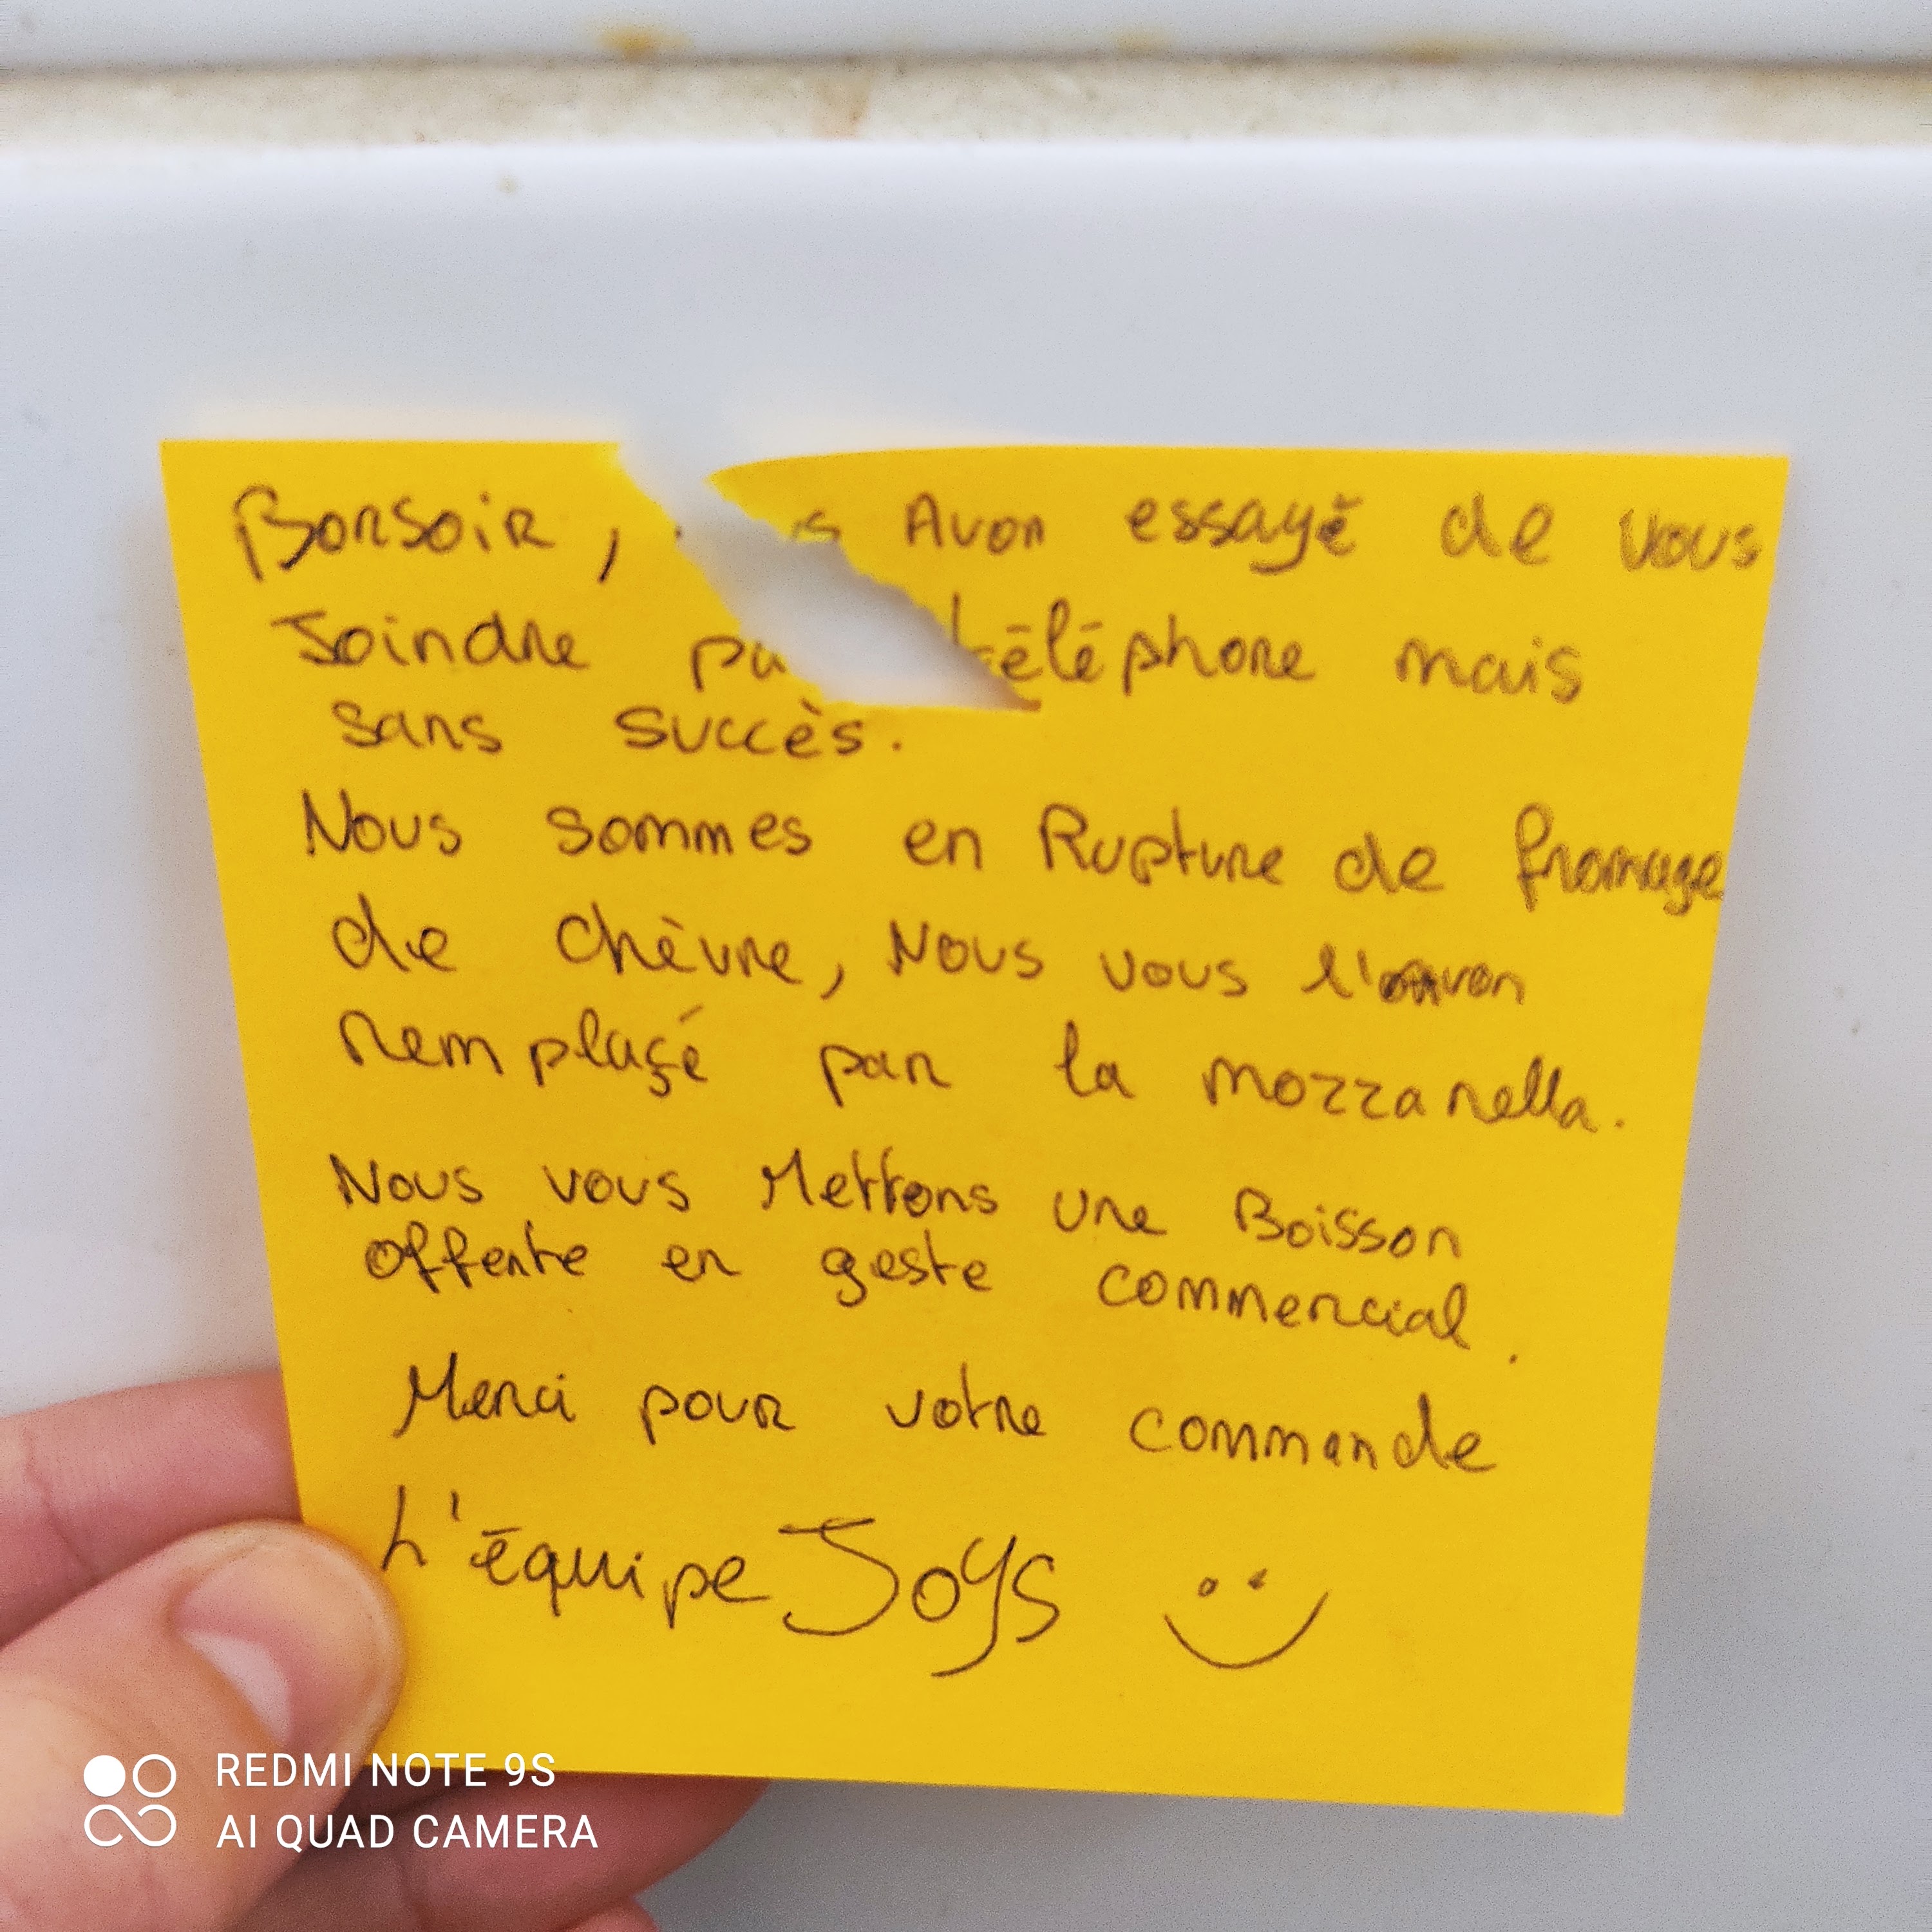 Bonsoir, Avon essayé de vous
Joindre téléphone mais
sans succès.
Nous sommes en Rupture de fromage
de chèvre, Nous vous l'avon
remplaçé par la mozzarella.
Nous vous Mettons une Boisson
offerte en geste commercial.
Merci pour votre commande
L'équipe Joys
REDMI NOTE 9S
AI QUAD CAMERA